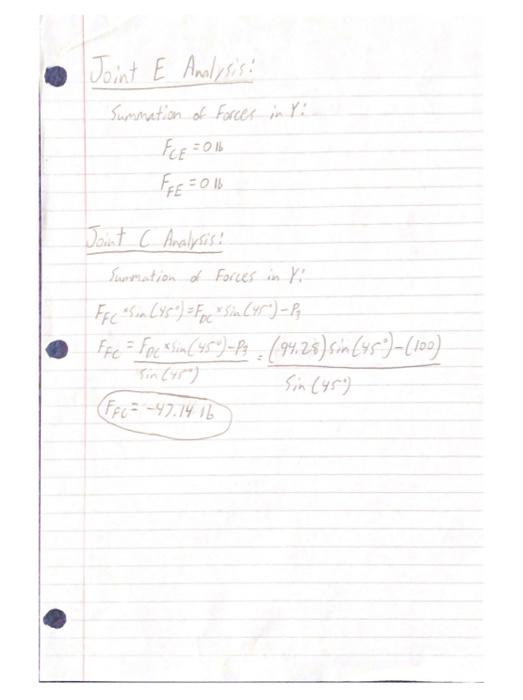 Joint E Analysis:
Summation of Forces in Y:
F_CE = 0 lb
F_FE = 0 lb
Joint C Analysis:
Summation of Forces in Y:
F_FC * Sin(45°) = F_DC * Sin(45°) - P_3
F_FC = (F_DC * Sin(45°) - P_3) / Sin(45°) = ((94.28) Sin(45°) - (100)) / Sin(45°)
F_FC = -47.14 lb